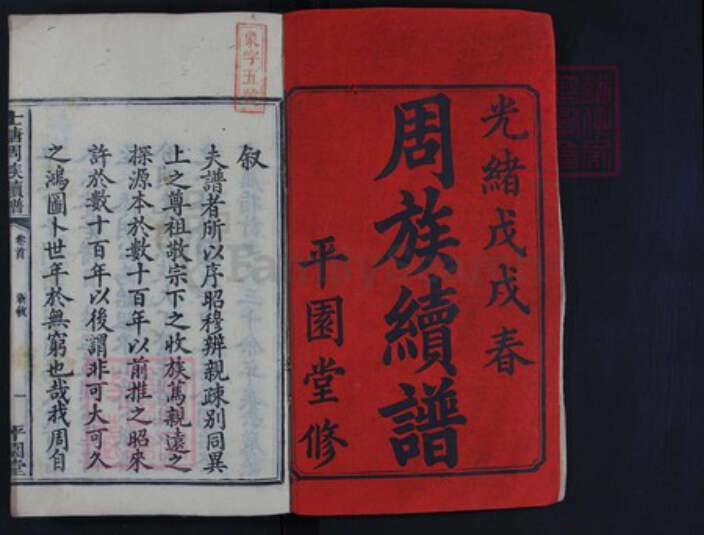 光緒戊戌春
周族續譜
平園堂修
叙
夫譜者所以序昭穆辨親疎別同異
上之尊祖敬宗下之收族篤親遠之
探源本於數十百年以前推之昭來
許於數十百年以後謂非可大可久
之鴻圖卜世年於無窮也哉我周自
七塘周族續譜
卷首
一
平園堂